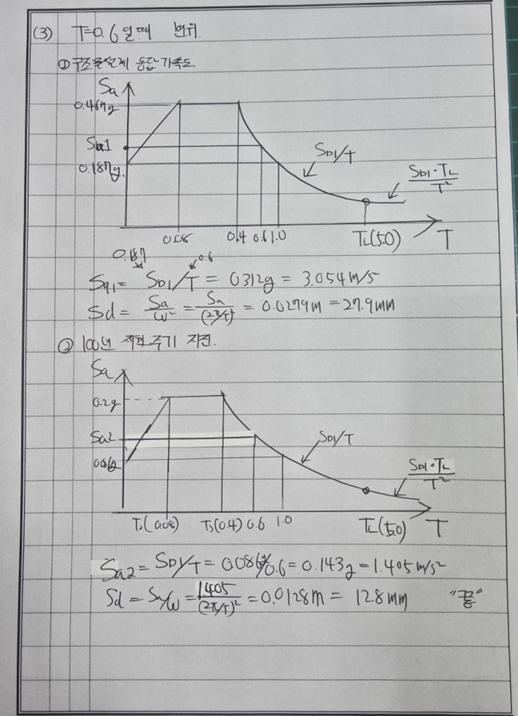 (3) T=0.6 일때 변위.
① 구조물설계 응답가속도.
Sa
0.467g
Sa1
0.187g.
SD1/T
SD1·TL/T²
0.08 0.4 0.6 1.0 TL(5.0) T
0.187 0.6
Sa1 = SD1/T = 0.312g = 3.054m/s
Sd = Sa/ω² = Sa/(2π/T)² = 0.0279m = 27.9mm
② 100년 재현주기 지진.
Sa
0.2g
Sa2
SD1/T
SD1·TL/T²
(0.08) Ts(0.4) 0.6 1.0 TL(5.0) T
Sa2 = SD1/T = 0.086g/0.6 = 0.143g = 1.405m/s²
Sd = Sa/ω = 1.405/(2π/T)² = 0.0128m = 12.8mm "끝"